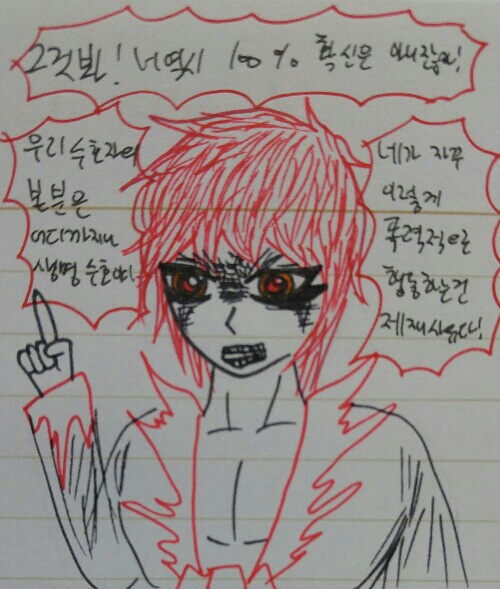 그것봐! 너 역시 100% 확신은 아니잖아!
우리 수호자의
본분은
어디까지나
생명 수호야!
네가 자꾸
이렇게
폭력적으로
행동하는건
제재사유다!